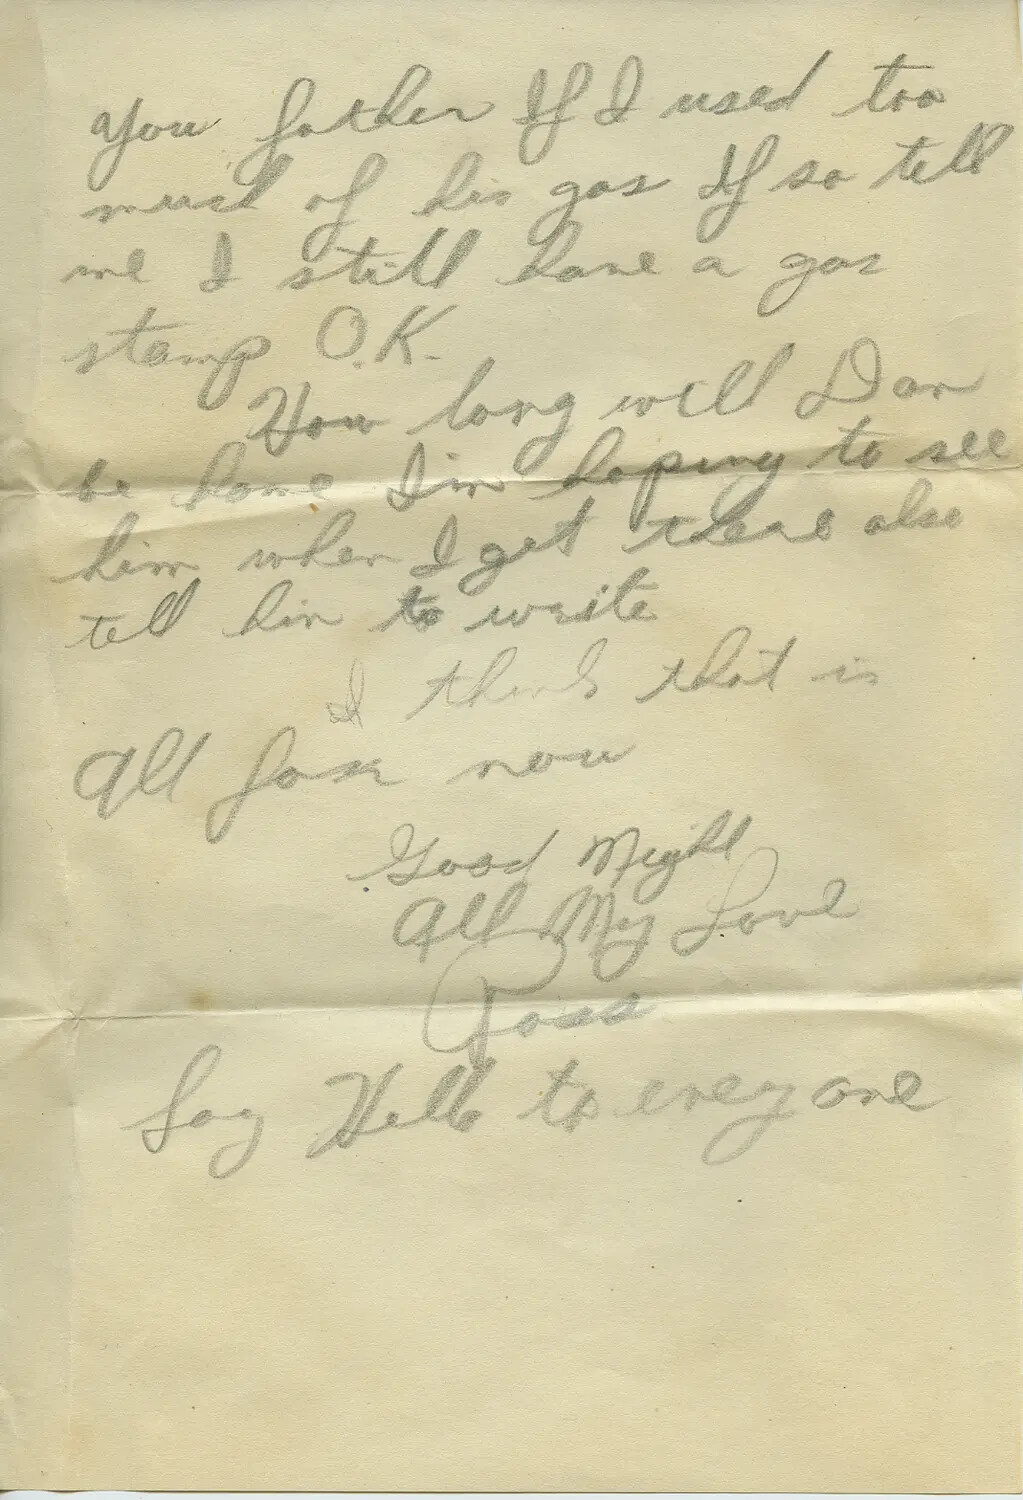 you father If I used too
much of his gas If so tell
me I still have a gas
stamp O.K.
How long will Dan
be home I'm hoping to see
him when I get there also
tell him to write
I think that is
All for now
Good Night
All My Love
Ross
Say Hello to every one